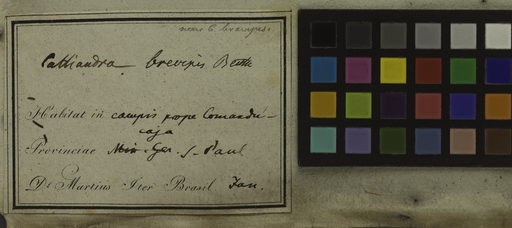 Calliandra brevipes Benth
Habitat in campis prope Comandu-
caja
Provinciae Min. Ger. S. Paul
Dr. Martius Iter Brasil Jan.